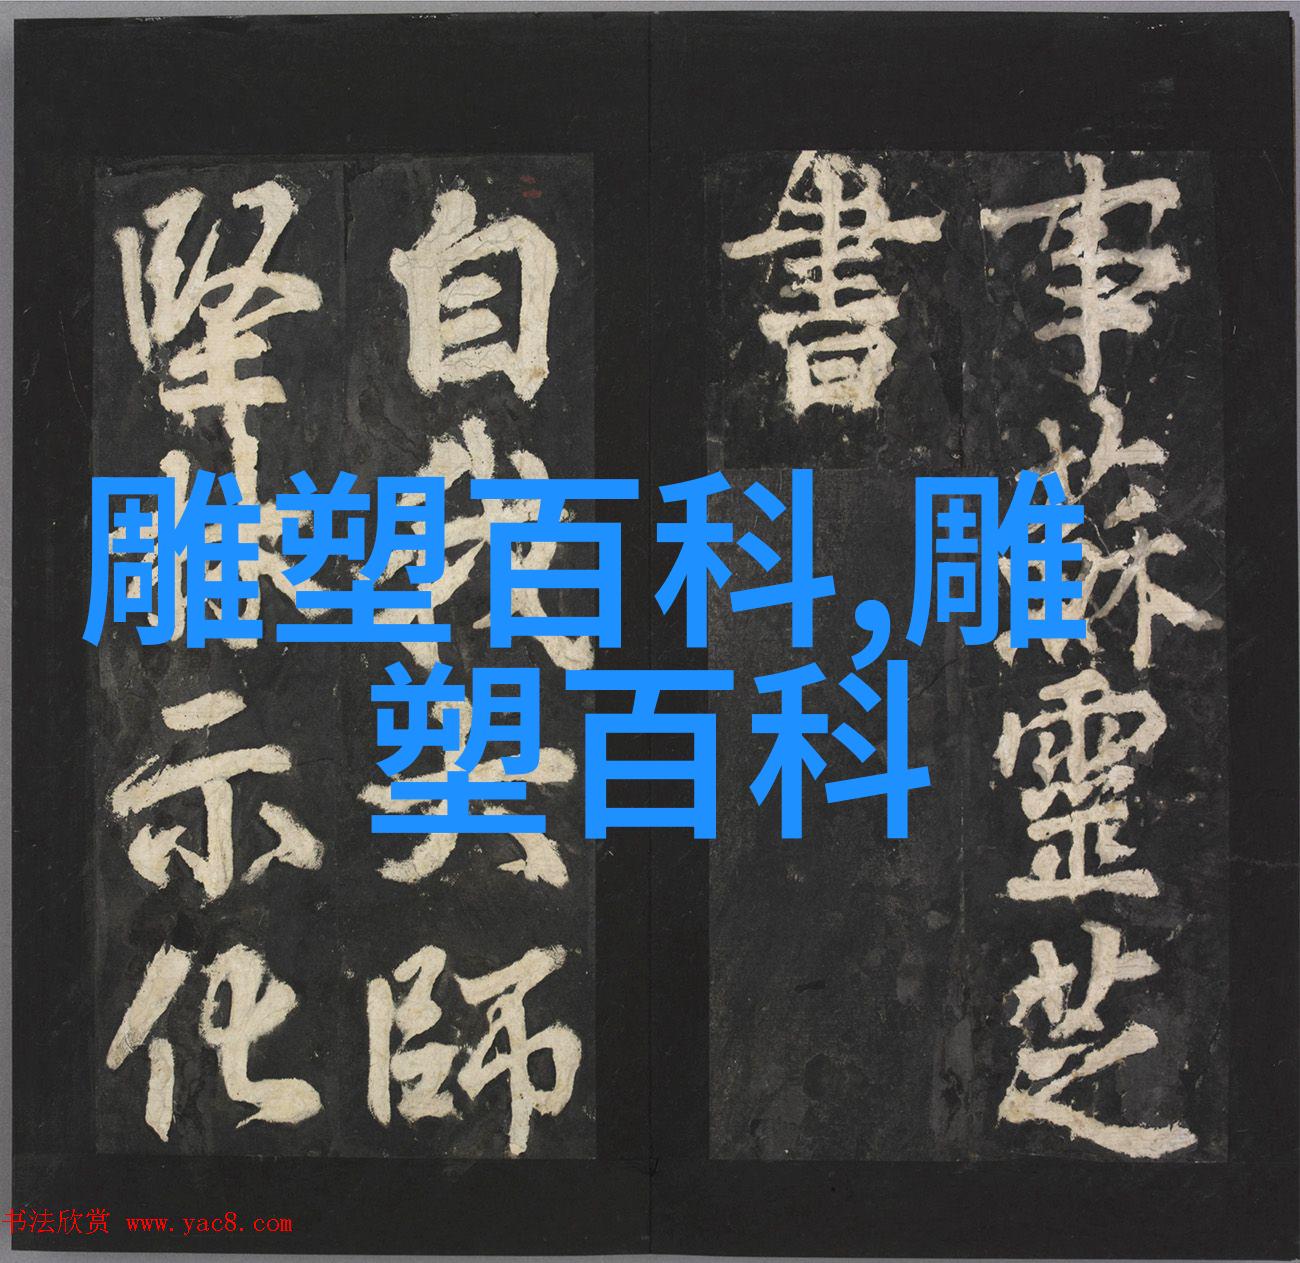 事蘇靈芝
書
自我大師
堅林示化
雕塑百科,雕
塑百科
书法欣赏 www.yac8.com